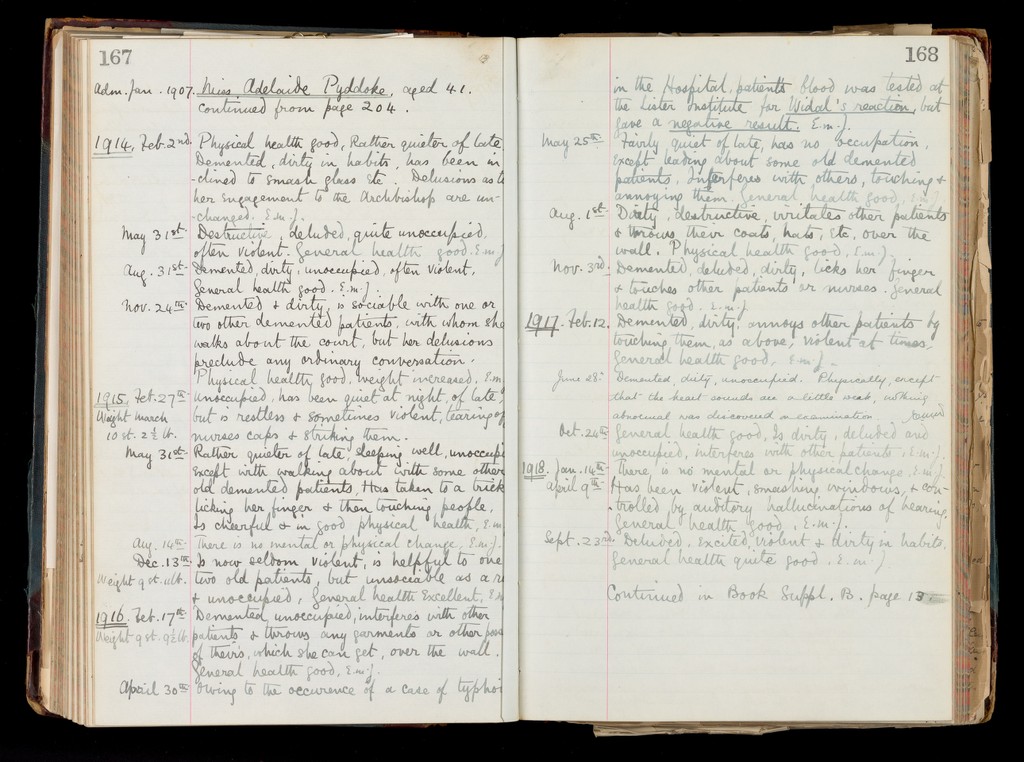 167
Adm. Jan. 1907. Miss Adelaide Pyddoke, aged 41.
Continued from page 204.
1914. Feb. 2nd. Physical health good, Rather quieter of late
Demented, dirty in habits, has been in
-clined to smash glass etc. Delusions as to
her engagement to the Archbishop are un-
-changed. E.M.J.
May 31st. Destructive, deluded, quite unoccupied,
often violent. General health good. E.M.J
Aug. 31st. Demented, dirty, unoccupied, often violent,
General health good. E.M.J.
Nov. 24th. Demented & dirty, is sociable with one or
two other demented patients, with whom she
walks about the court, but her delusions
preclude any ordinary conversation.
Physical health, good, weight increased, E.M
1915. Feb. 27th Unoccupied, has been quiet at night, of late,
Weight March but is restless & sometimes violent, tearing of
10 st. 2½ lb. nurses caps & striking them.
May 31st. Rather quieter of late, sleeping well, unoccupi
except with walking about with some other
old demented patients, Has taken to a trick
licking her finger & then touching people,
Is cheerful & in good physical health, E.M
Aug. 14th There is no mental or physical change, E.M.J.
Dec. 13th. Is now seldom violent, is helpful to one
Weight 9 st. 11lb. two old patients, but unsociable as a r
& unoccupied, General health excellent, E.M
1916. Feb. 17th Demented, unoccupied, interferes with other
Weight 9 st. 9½ lb. patients & throws any garments or other poss
of theirs, which she can get, over the wall.
General health good, E.M.J.
April 30th Owing to the occurence of a case of typhoi
168
in the Hospital, patients blood was tested at
the Lister Institute for Widal's reaction, but
gave a negative result. E.M.J.
May 25th Fairly quiet of late, has no occupation,
except leading about some old demented
patients. Interferes with others, touching &
annoying them. General health good, E.M.J
Aug. 1st. Dirty, destructive, irritates other patients
& throws their coats, hats, etc, over the
wall. Physical health good, E.M.J.
Nov. 3rd. Demented, deluded, dirty, licks her finger
& touches other patients or nurses. General
health good. E.M.J
1917. Feb. 12. Demented, dirty, annoys other patients by
touching them, as above, violent at times,
General health good, E.M.J.
June 28. Demented, dirty, unoccupied. Physically, except
that the heart sounds are a little weak, nothing
abnormal was discovered on examination
Oct. 24th General health good, Is dirty, deluded and
unoccupied, interferes with other patients, E.M.J.
1918. Jan. 14th There is no mental or physical change, E.M.J.
April 9th Has been violent, smashing windows, & con-
-trolled by auditory hallucinations of hearing,
General health good, E.M.J.
Sept. 23rd. Deluded, excited, violent & dirty in habits.
General health quite good. E.M.J
Continued in Book Suppl. B. page 13.